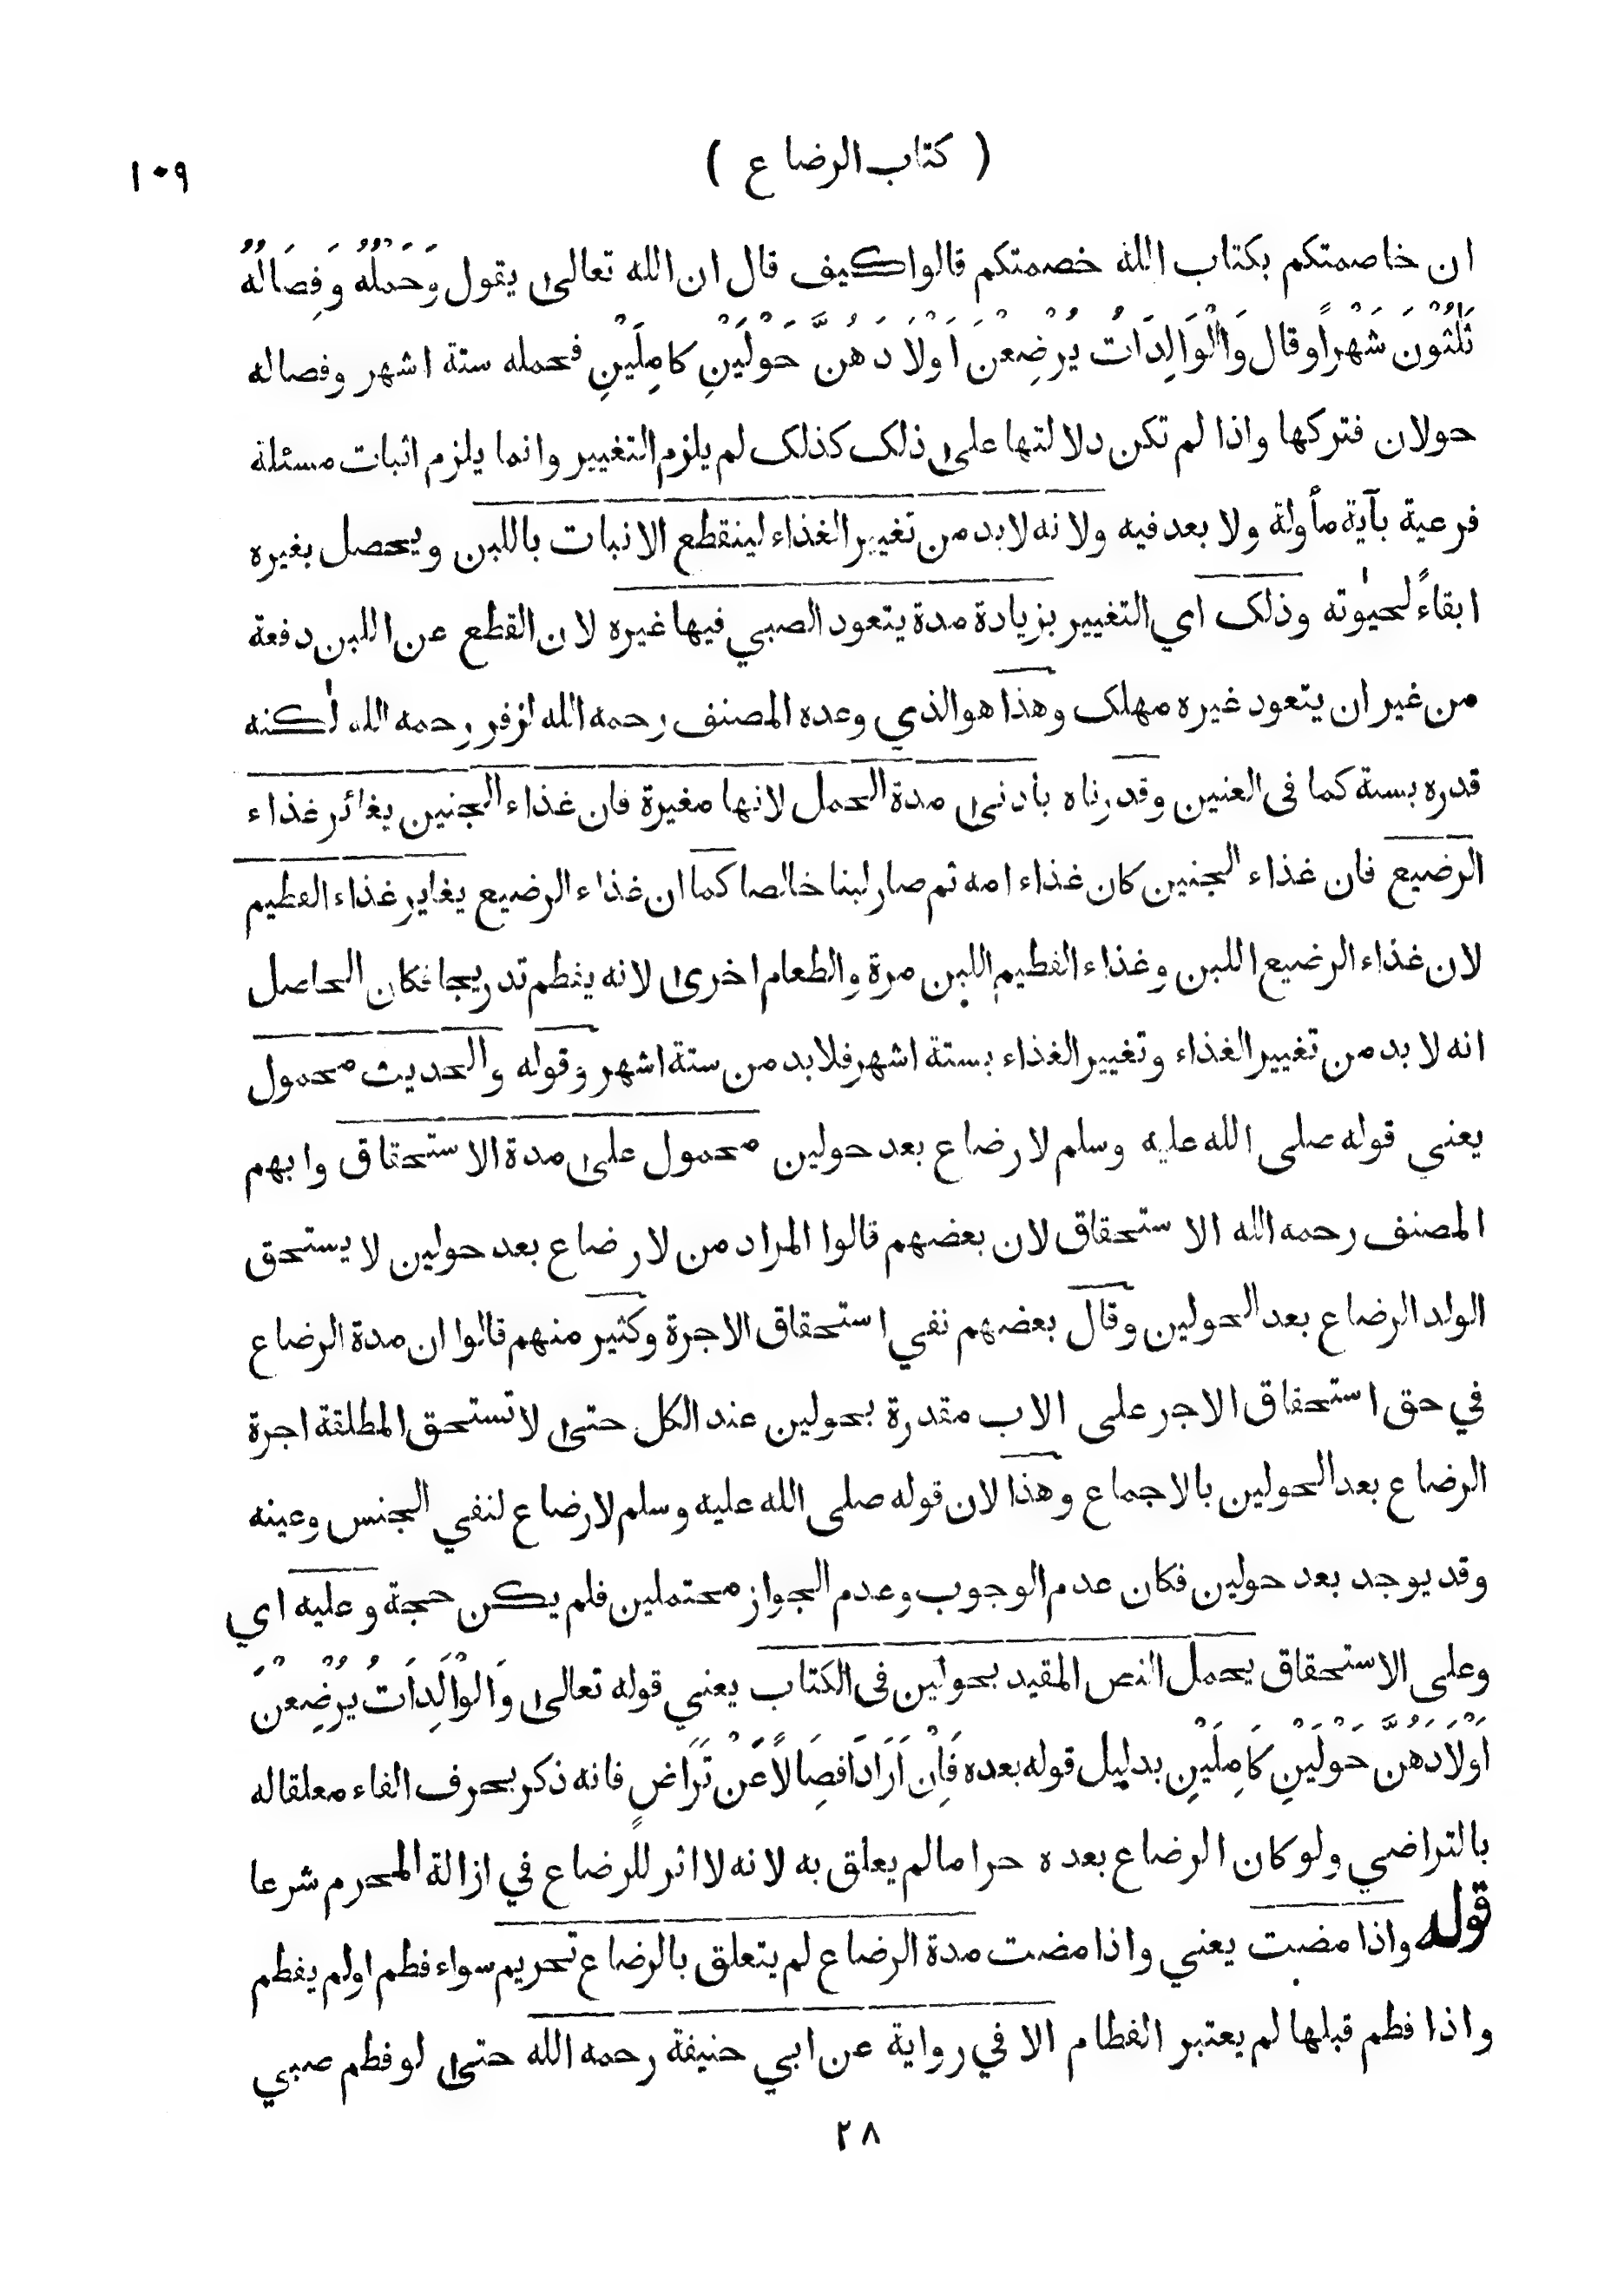 ( كتاب الرضاع )
١٠٩
ان خاصمتكم بكتاب الله خصمتكم قالوا كيف قال ان الله تعالى يقول وَحَمْلُهُ وَفِصَالُهُ
ثَلٰثُوْنَ شَهْرًا وقال وَالْوَالِدَاتُ يُرْضِعْنَ اَوْلَادَهُنَّ حَوْلَيْنِ كَامِلَيْنِ فحمله ستة اشهر وفصاله
حولان فتركها واذا لم تكن دلالتها على ذلك كذلك لم يلزم التغيير وانما يلزم اثبات مسئلة
فرعية بآية مأولة ولا بعد فيه ولانه لا بد من تغيير الغذاء لينقطع الانبات باللبن ويحصل بغيره
ابقاءً لحيٰوته وذلك اي التغيير بزيادة مدة يتعود الصبي فيها غيره لان القطع عن اللبن دفعة
من غير ان يتعود غيره مهلك وهذا هو الذي وعده المصنف رحمه الله لزفر رحمه الله لٰكنه
قدره بسنة كما فى العنين وقدرناه بأدنى مدة الحمل لانها مغيرة فان غذاء الجنين يغائر غذاء
الرضيع فان غذاء الجنين كان غذاء امه ثم صار لبنا خالصا كما ان غذاء الرضيع يغاير غذاء الفطيم
لان غذاء الرضيع اللبن وغذاء الفطيم اللبن مرة والطعام اخرى لانه يفطم تدريجا فكان الحاصل
انه لا بد من تغيير الغذاء وتغيير الغذاء بستة اشهر فلا بد من ستة اشهر وقوله والحديث محمول
يعني قوله صلى الله عليه وسلم لا رضاع بعد حولين محمول على مدة الاستحقاق وابهم
المصنف رحمه الله الاستحقاق لان بعضهم قالوا المراد من لا رضاع بعد حولين لا يستحق
الولد الرضاع بعد الحولين وقال بعضهم نفي استحقاق الاجرة وكثير منهم قالوا ان مدة الرضاع
في حق استحقاق الاجر على الاب مقدرة بحولين عند الكل حتى لا تستحق المطلقة اجرة
الرضاع بعد الحولين بالاجماع وهذا لان قوله صلى الله عليه وسلم لا رضاع لنفي الجنس وعينه
وقد يوجد بعد حولين فكان عدم الوجوب وعدم الجواز محتملين فلم يكن حجة وعليه اي
وعلى الاستحقاق يحمل النص المقيد بحولين فى الكتاب يعني قوله تعالى وَالْوَالِدَاتُ يُرْضِعْنَ
اَوْلَادَهُنَّ حَوْلَيْنِ كَامِلَيْنِ بدليل قوله بعده فَاِنْ اَرَادَا فِصَالًا عَنْ تَرَاضٍ فانه ذكر بحرف الفاء معلقا له
بالتراضي ولو كان الرضاع بعده حراما لم يعلق به لانه لا اثر للرضاع في ازالة المحرم شرعا
قوله واذا مضت يعني واذا مضت مدة الرضاع لم يتعلق بالرضاع تحريم سواء فطم او لم يفطم
واذا فطم قبلها لم يعتبر الفطام الا في رواية عن ابي حنيفة رحمه الله حتى لو فطم صبي
٢٨